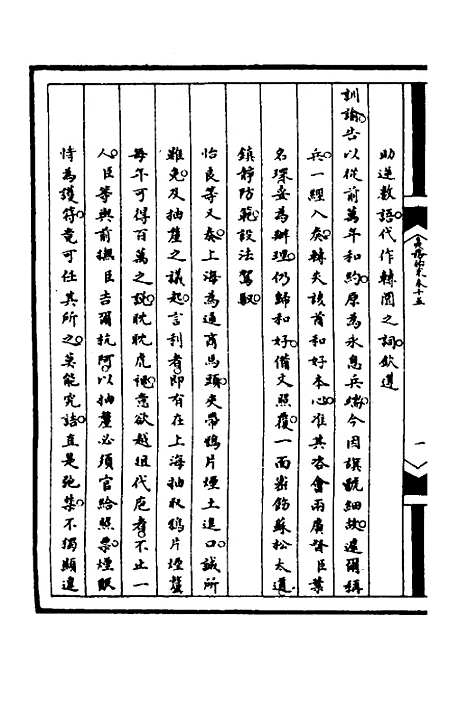 卷十五
一
助逆數語代作轉圜之詞欽遵
訓諭告以從前萬年和約原為永息兵端今因旗號細故遽爾稱
兵一經入奏轉失該酋和好本心准其咨會兩廣督臣葉
名琛妥為辦理仍歸和好備文照覆一面密飭蘇松太道
鎮靜防範設法駕馭
怡良等又奏上海為通商馬頭夾帶鴉片煙土進口誠所
難免及抽釐之議起言利者即有在上海抽收鴉片煙釐
每年可得百萬之說眈眈虎視意欲越俎代庖者不止一
人臣等與前撫臣吉爾杭阿以抽釐必須官給照票煙販
恃為護符竟可任其所之莫能究詰直是弛禁不獨顯違